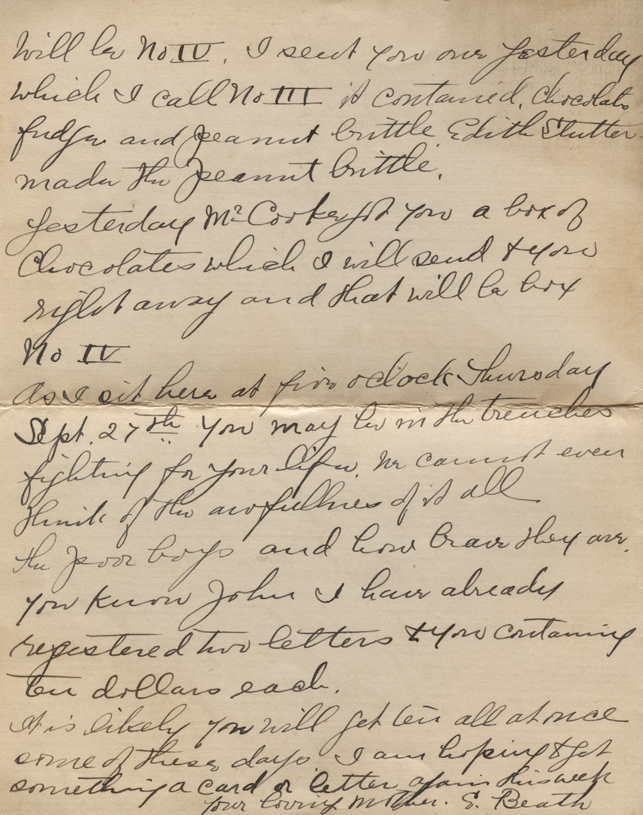 Will be No IV. I sent you one yesterday
which I call No III it contained, chocolate
fudge and peanut brittle Edith
made the peanut brittle.
Yesterday Mr Cooke got you a box of
Chocolates which I will send to you
right away and that will be box
No IV
As I sit here at five oclock Thursday
Sept. 27th you may be in the trenches
fighting for your life. We cannot even
think of the awfullnes of it all
the poor boys and how brave they are.
you know John I have already
registered two letters to you containing
ten dollars each.
It is likely you will get it all at once
some of these days I am hoping to get
something a card or letter again this week
your loving Mother. S. Beath